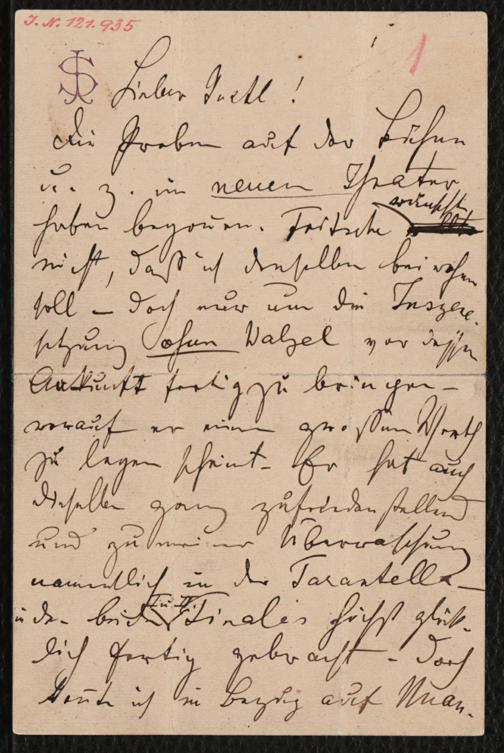 J. N. 121.935
1
JS
Lieber Pretl!
die Proben auf der Bühne
u. z. im neuen Theater
haben begonnen. Fritzsche wünscht
nicht, daß ich denselben beiwohnen
soll – doch nur um die Inszene-
setzung ohne Walzel vor dessen
Ankunft fertig zu bringen –
worauf er einen großen Werth
zu legen scheint. Er hat auch
dieselbe ganz zufriedenstellend
und zu meiner Überraschung
namentlich in der Tarantella –
in den beiden I u II Finales höchst glück-
lich fertig gebracht – doch
konnte ich in Bezug auf Nuan-